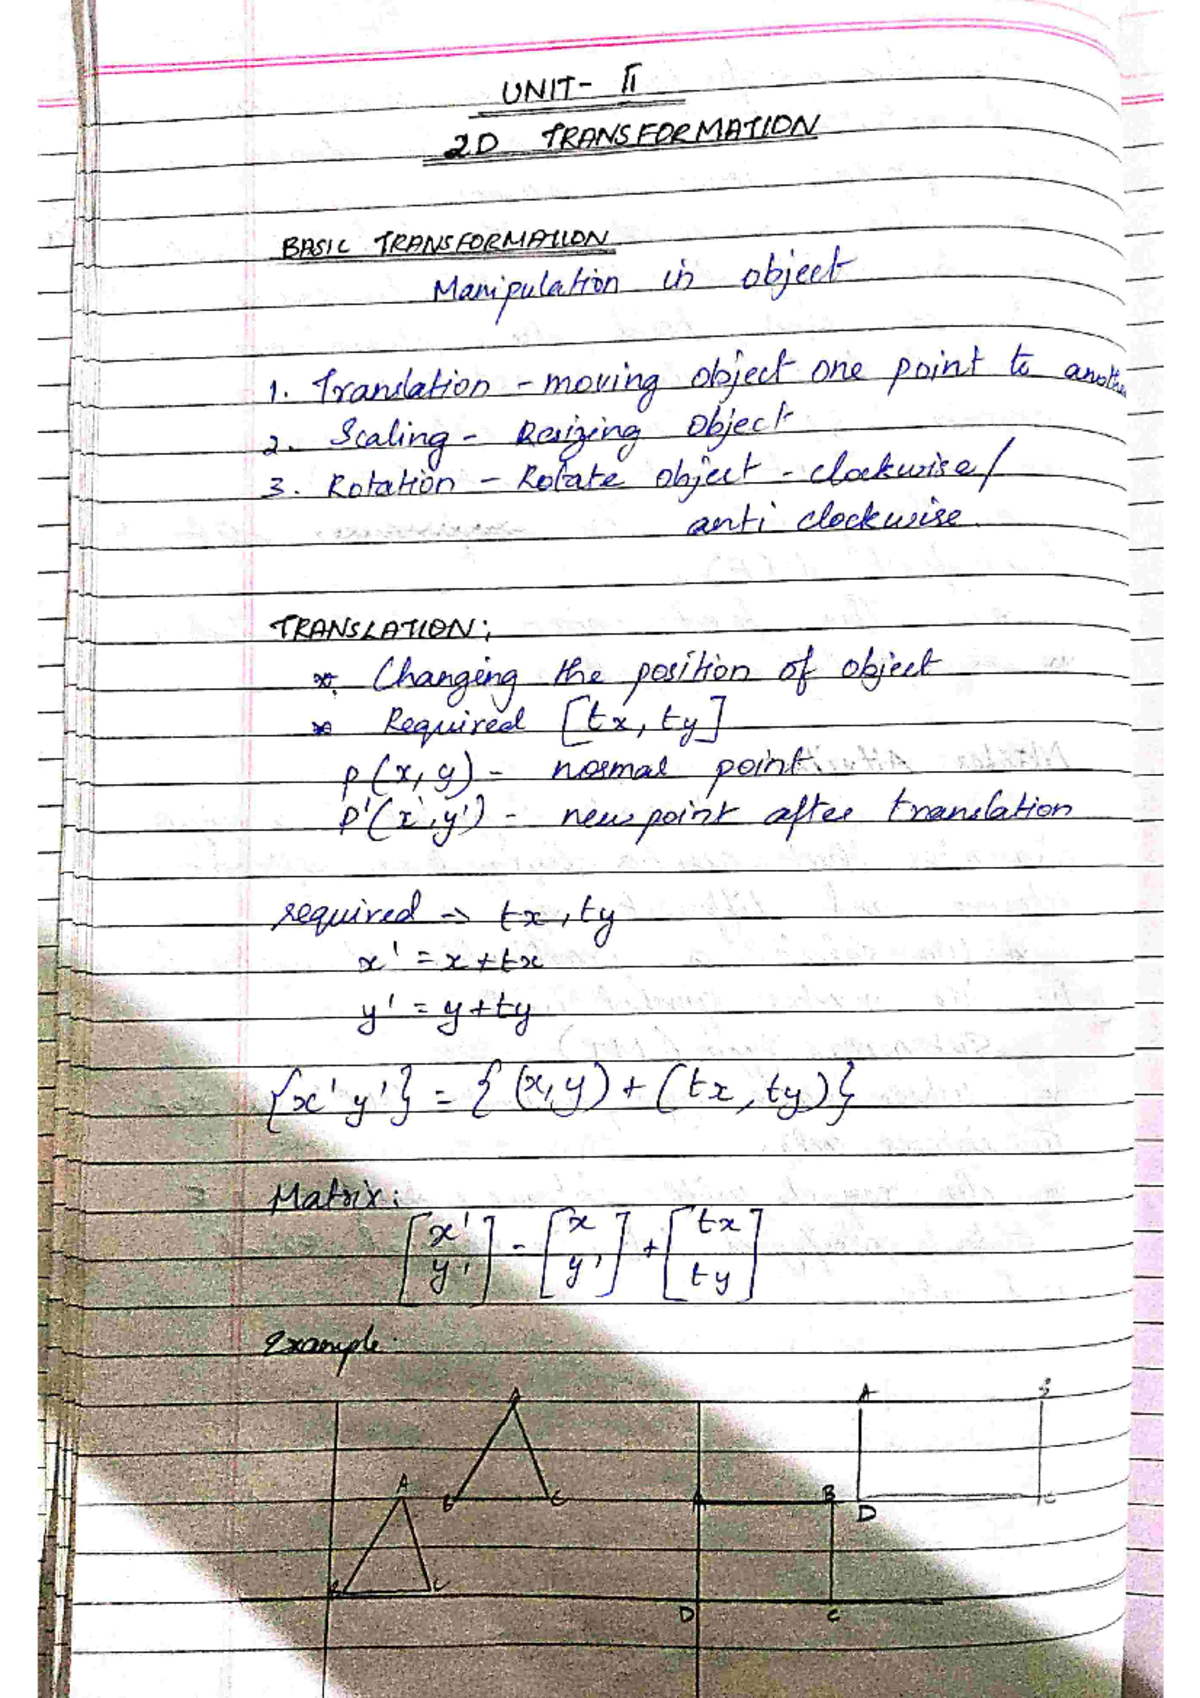 UNIT- II
2D TRANSFORMATION
BASIC TRANSFORMATION
Manipulation in object
1. Translation - moving object one point to another
2. Scaling - Resizing object
3. Rotation - Rotate object - clockwise/
anti clockwise.
TRANSLATION;
* Changing the position of object
* Required [tx, ty]
P(x, y) - normal point
P'(x', y') - new point after translation
required -> tx, ty
x' = x + tx
y' = y + ty
{x' y'} = {(x, y) + (tx, ty)}
Matrix:
[x' y'] - [x y'] + [tx ty]
Example:
A B
A
A B C B D C
B C D C